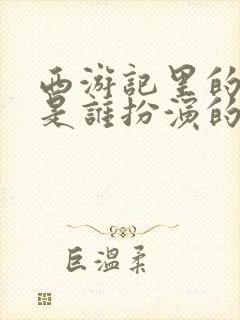 西游記里的
是誰扮演的
巨溫柔